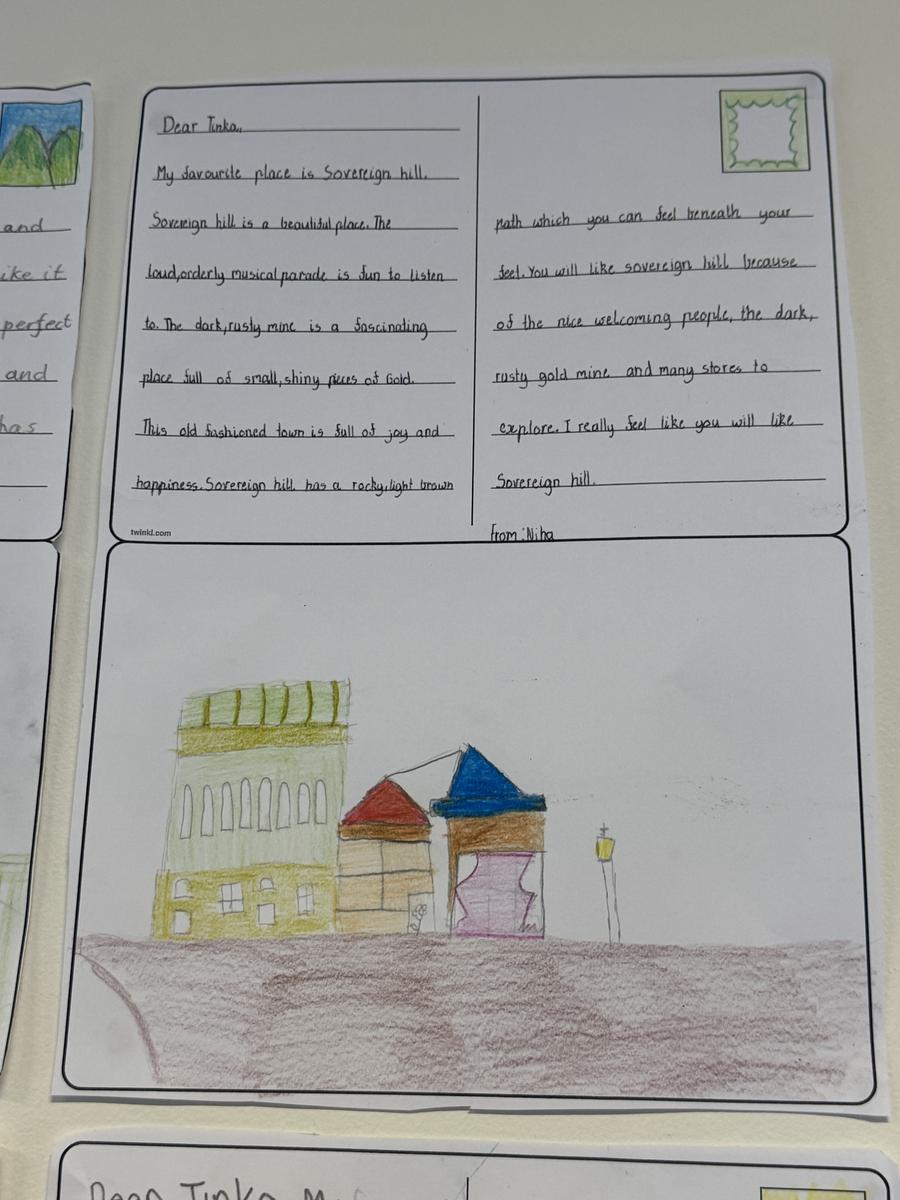 Dear Tinka,
My favourite place is Sovereign hill.
Sovereign hill is a beautiful place. The
loud, orderly musical parade is fun to listen
to. The dark, rusty mine is a fascinating
place full of small, shiny pieces of Gold.
This old fashioned town is full of joy and
happiness. Sovereign hill has a rocky, light brown
path which you can feel beneath your
feet. You will like sovereign hill because
of the nice welcoming people, the dark,
rusty gold mine and many stores to
explore. I really feel like you will like
Sovereign hill.
From: Niha
twinkl.com
and
ike it
perfect
and
has
Dear Tinka M